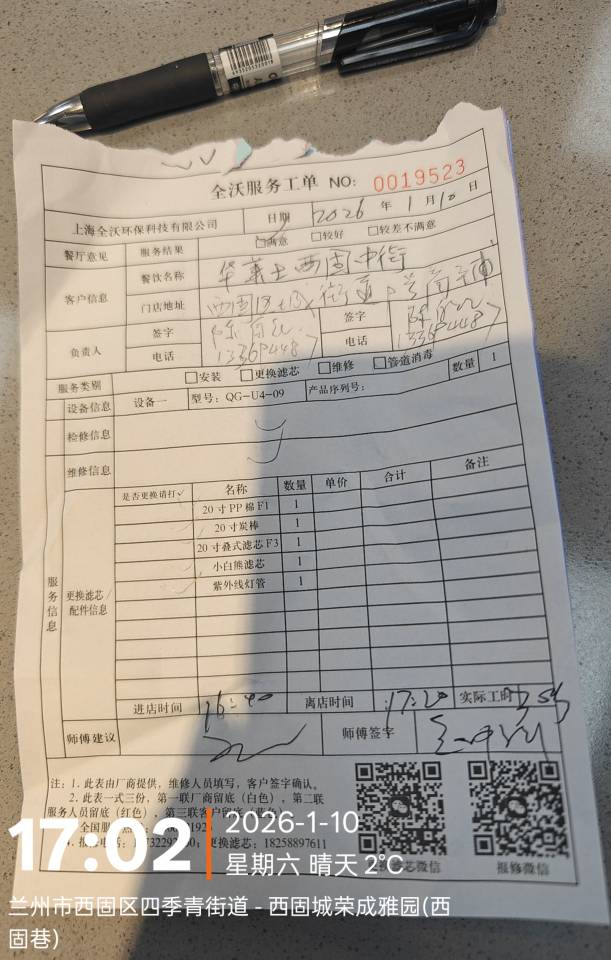 全沃服务工单 NO: 0019523
上海全沃环保科技有限公司 日期 2026 年 1 月 10 日
餐厅意见 服务结果 □满意 □较好 □较差不满意
客户信息 餐饮名称 华莱士西固中街
门店地址 西固区 街道
负责人 签字 签字
电话 电话
服务类别 □安装 □更换滤芯 □维修 □管道消毒 数量 1
设备信息 设备一 型号: QG-U4-09 产品序列号:
检修信息
维修信息
服务信息 更换滤芯/配件信息 是否更换请打✓ 名称 数量 单价 合计 备注
20寸PP棉F1 1
20寸炭棒 1
20寸叠式滤芯F3 1
小白熊滤芯 1
紫外线灯管 1
进店时间 16:40 离店时间 17:20 实际工时
师傅建议 师傅签字
注: 1. 此表由厂商提供, 维修人员填写, 客户签字确认。
2. 此表一式三份, 第一联厂商留底(白色), 第二联
服务人员留底(红色), 第三联客户留底
全国服
更换滤芯: 18258897611
微信 报修微信
17:02
2026-1-10
星期六 晴天 2℃
兰州市西固区四季青街道 - 西固城荣成雅园(西
固巷)